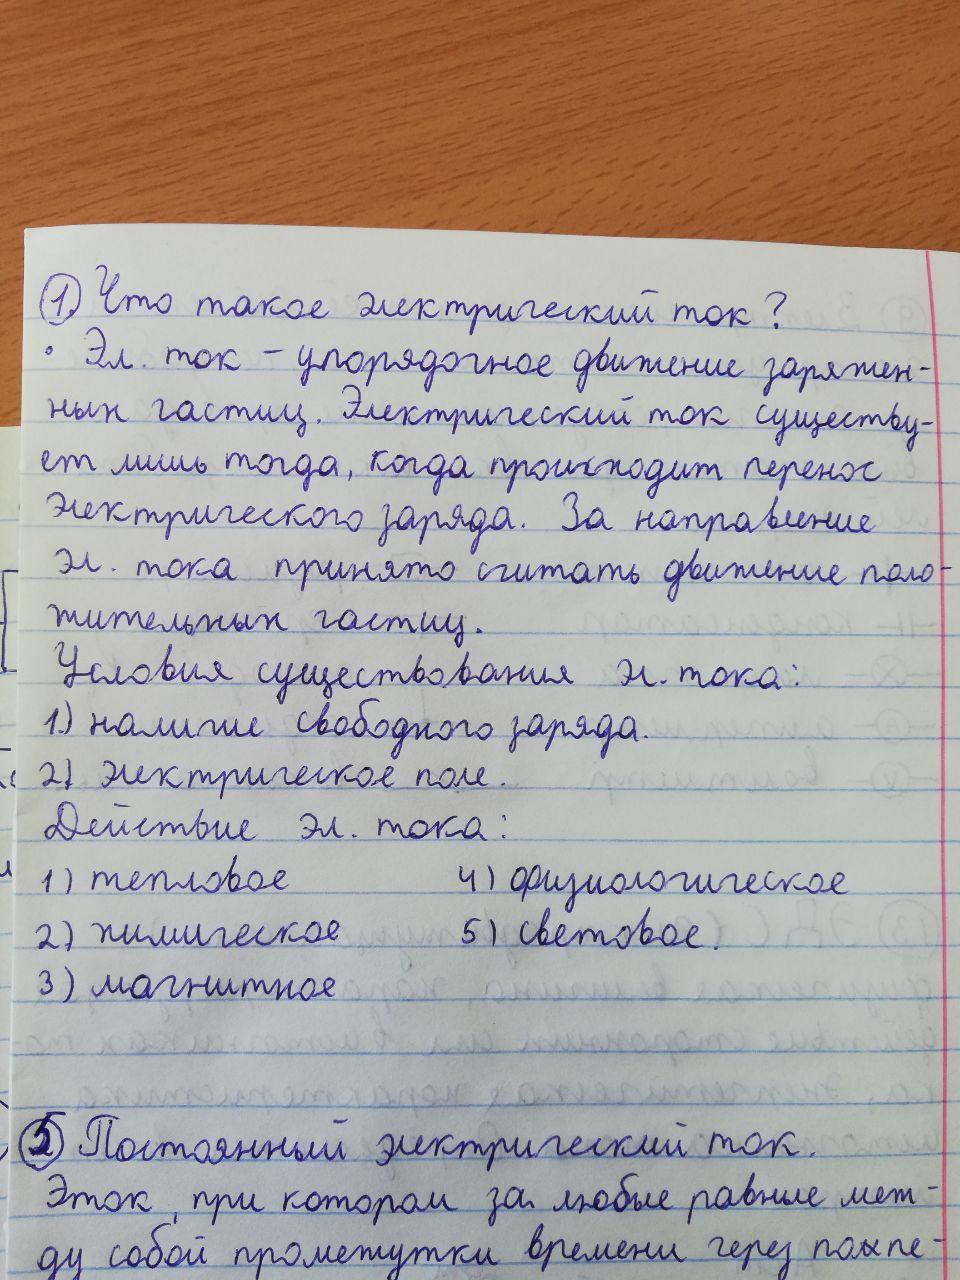 1. Что такое электрический ток?
• Эл. ток – упорядочное движение заряжен-
ных частиц. Электрический ток существу-
ет лишь тогда, когда происходит перенос
электрического заряда. За направление
эл. тока принято считать движение поло-
жительных частиц.
Условия существования эл. тока:
1.) наличие свободного заряда.
2) электрическое поле.
Действие эл. тока:
1) тепловое 4) физиологическое
2) химическое 5) световое.
3) магнитное
Постоянный электрический ток.
Эток, при котором за любые равные меж-
ду собой промежутки времени через попе-